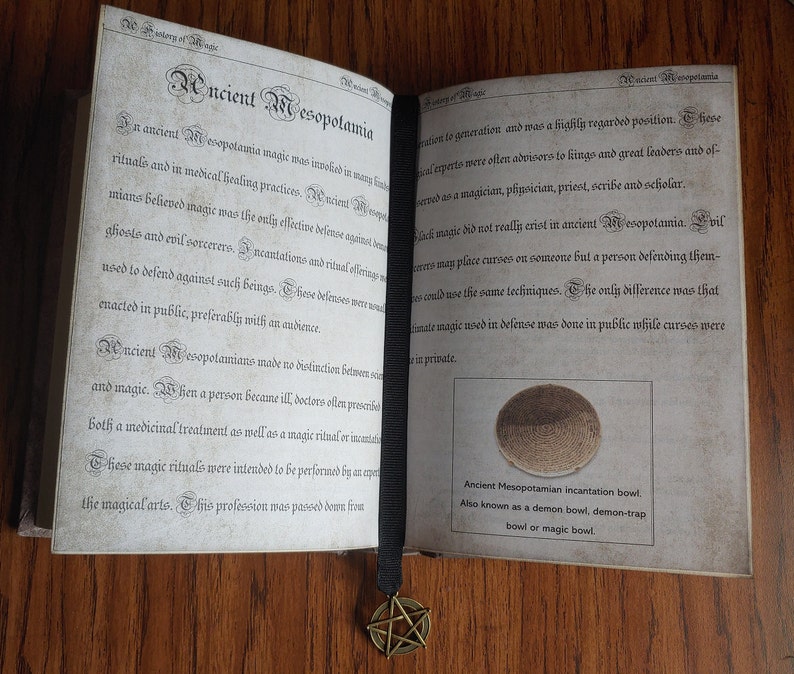 A History of Magic
Ancient
Ancient Mesopotamia
In ancient Mesopotamia magic was invoked in many kinds
rituals and in medical healing practices. Ancient Mesopot
mians believed magic was the only effective defense against demo
ghosts and evil sorcerers. Incantations and ritual offerings we
used to defend against such beings. These defenses were usuall
enacted in public, preferably with an audience.
Ancient Mesopotamians made no distinction between scien
and magic. When a person became ill, doctors often prescribed
both a medicinal treatment as well as a magic ritual or incantation
These magic rituals were intended to be performed by an expert
the magical arts. This profession was passed down from
History of Magic
Ancient Mesopotamia
eration to generation and was a highly regarded position. These
gical experts were often advisors to kings and great leaders and of-
served as a magician, physician, priest, scribe and scholar.
lack magic did not really exist in ancient Mesopotamia. Evil
cerers may place curses on someone but a person defending them-
ves could use the same techniques. The only difference was that
itimate magic used in defense was done in public while curses were
e in private.
Ancient Mesopotamian incantation bowl.
Also known as a demon bowl, demon-trap
bowl or magic bowl.